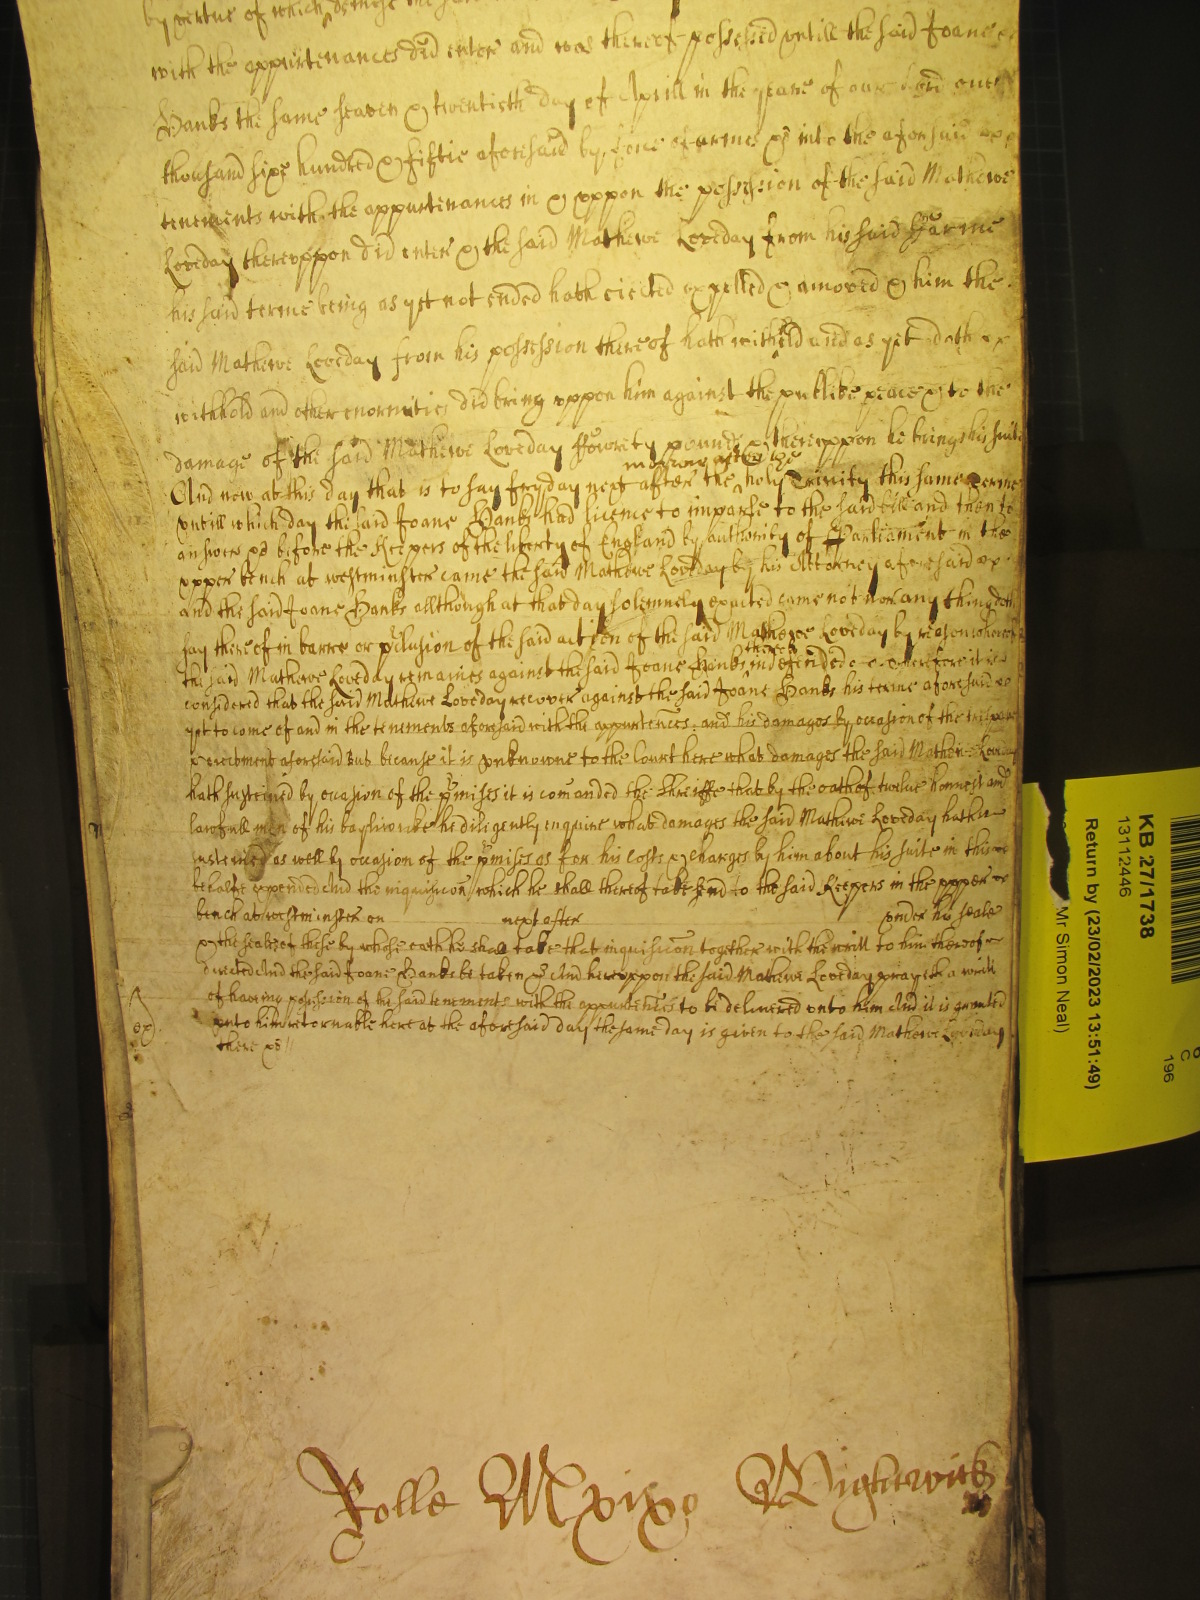 by vertue of which demise the said
with the appurtenances did enter and was thereof possessed untill the said Joane
Hanks the same seaven & twentieth day of Aprill in the yeare of our Lord one
thousand sixe hundred & fiftie aforesaid by force & armes &c into the aforesaid
tenements with the appurtenances in & uppon the possession of the said Mathewe
Loveday thereuppon did enter & the said Mathewe Loveday from his said ffarme
his said terme being as yet not ended hath eiected expelled & amoved & him the
said Mathewe Loveday from his possession thereof hath withheld and as yet doth
withhold and other enormities did bring uppon him against the publike peace & to the
damage of the said Mathewe Loveday ffowrety pounds & thereuppon he brings his suite
And now at this day that is to say fryday next after the morrow after the holy Trinity this same terme
untill which day the said Joane Hanks had licence to imparle to the said bill and then to
answere &c before the Keepers of the liberty of England by authority of Parliament in the
upper bench at westminster came the said Mathewe Loveday by his Attorney aforesaid
and the said Joane Hanks allthough at that day solemnely exacted came not nor any thing doth
say thereof in barre or p'clusion of the said action of the said Mathewe Loveday by reason whereof
the said Mathewe Loveday remaines against the said Joane Hanks therein indefended &c wherefore it is
considered that the said Mathewe Loveday recover against the said Joane Hanks his terme aforesaid
yet to come of and in the tenements aforesaid with the appurtences and his damages by occasion of the trespas
& eiectment aforesaid But because it is unknowne to the Court here what damages the said Mathewe Loveday
hath susteined by occasion of the p'mises it is comanded the Shreiffe that by the oath of twelve honnest and
lawfull men of his baylywicke he diligently enquire what damages the said Mathewe Loveday hath
susteined as well by occasion of the p'mises as for his costs & charges by him about his suite in this
behalfe expended And the inquisicon which he shall thereof take send to the said Keepers in the upper
bench at westminster on next after under his seale
& the seales of those by whose oath he shall take that inquisicon together with the writt to him thereof
directed And the said Joane Hanks be taken &c And hereuppon the said Mathewe Loveday prayeth a writt
of haveing possession of the said tenements with the appurtences to be delivered unto him And it is granted
unto him retornable here at the aforesaid day the same day is given to the said Mathewe Loveday
there &c
Rolle Mxixo Wightwick
KB 27/1738
13112446
Return by (23/02/2023 13:51:49)
Mr Simon Neal)
C
196